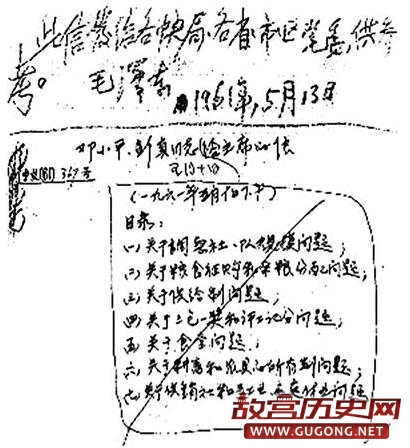 此信发给各中央局、各省市区党委,供参
考。
毛泽东
1961年,5月13日
邓小平、彭真同志给主席的信
五月十日
(一九六一年五月 日下午)
目录:
(一)关于调整社、队规模问题;
(二)关于粮食征购和余粮分配问题;
(三)关于供给制问题;
(四)关于三包一奖和评工记分问题;
(五)关于食堂问题;
(六)关于耕畜和农具的所有制问题;
(七)关于供销社和手工业 问题
故宫历史网
WWW.GUGONG.NET